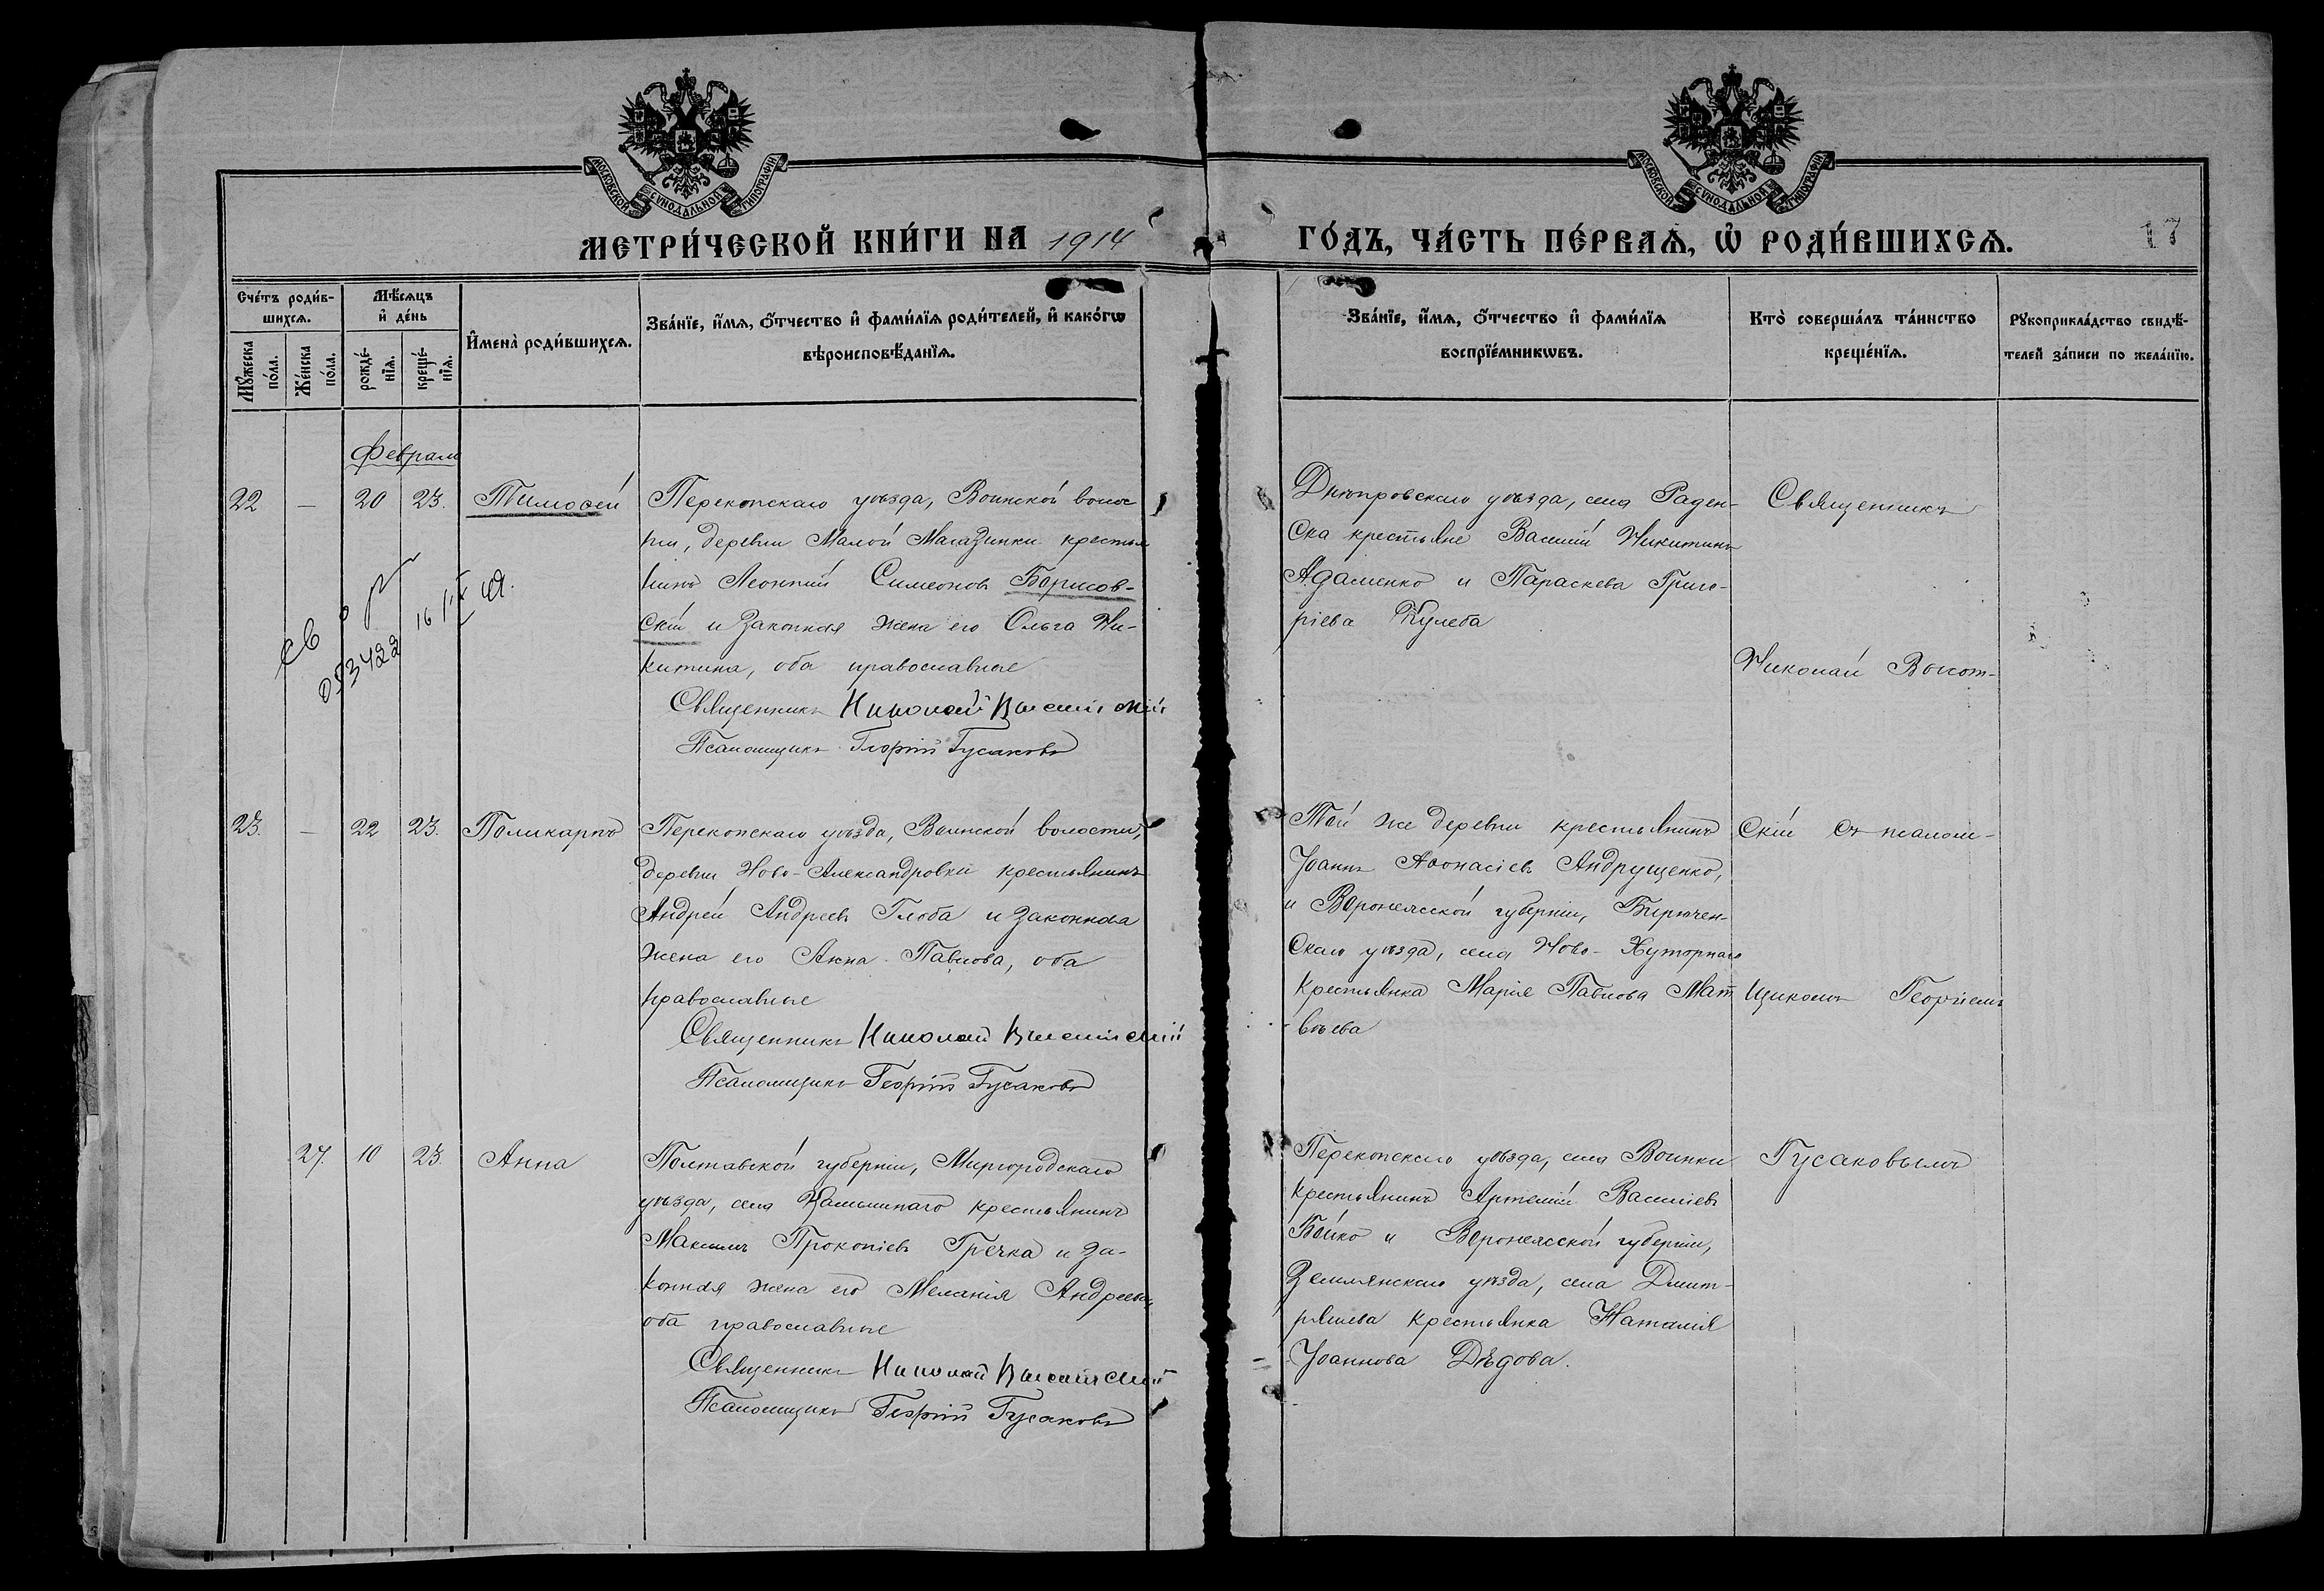 МОСКОВСКОЙ СѴНОДАЛЬНОЙ ТИПОГРАФІИ
МОСКОВСКОЙ СѴНОДАЛЬНОЙ ТИПОГРАФІИ
МЕТРИ́ЧЕСКОЙ КНИ́ГИ НА 1914
ГО́ДЪ, ЧА́СТЬ ПЕ́РВАѦ, Ѡ҆ РОДИ́ВШИХСѦ.
17
Сче́тъ роди́в-
шихсѧ.
Мѣ́сѧцъ
и҆ де́нь
Мꙋ́жеска
по́ла.
Же́нска
по́ла.
рожде́-
нїѧ.
креще́-
нїѧ.
И҆мена̀ роди́вшихсѧ.
Зва́нїе, и҆́мѧ, ѻ҆́тчество и҆ фами́лїѧ роди́телей, и҆ како́гѡ
вѣроисповѣ́данїѧ.
Зва́нїе, и҆́мѧ, ѻ҆́тчество и҆ фами́лїѧ
воспрїе́мникѡвъ.
Кто̀ соверша́лъ та́инство
креще́нїѧ.
Рꙋкоприкла́дство свидѣ́-
телей за́писи по жела́нїю.
Февраль
22 — 20 23. Тимоѳей
Перекопскаго уѣзда, Воинской волос
ти, деревни Малой Магазинки крестья
нинъ Леонтий Симеоновъ Борисов-
скій и законная жена его Ольга Ни-
китина, оба православные
Священникъ Николай
Псаломщикъ Георгій Гусаковъ
св о р
053422 16/IX 49.
Днѣпровскаго уѣзда, села Раден-
ска крестьяне Василій Никитинъ
Адаменко и Параскева Григо-
ріева Кулеба
Священникъ
Николай Высот-
23. — 22 23. Поликарпъ
Перекопскаго уѣзда, Воинской волости,
деревни Ново-Александровки крестьянинъ
Андрей Андреевъ Глоба и законная
жена его Анна Павлова, оба
православные
Священникъ Николай
Псаломщикъ Георгій Гусаковъ
Той же деревни крестьянинъ
Іоаннъ Аѳонасіевъ Андрущенко,
и Воронежской губерніи, Бирючен-
скаго уѣзда, села Ново-Хуторнаго
крестьянка Марія Павлова Мат
вѣева
скій съ псалом-
щикомъ Георгіемъ
27. 10 23. Анна
Полтавской губерніи, Миргородскаго
уѣзда, села крестьянинъ
Максимъ Прокопіевъ Гречка и за-
конная жена его Меланія Андреева,
оба православные
Священникъ Николай
Псаломщикъ Георгій Гусаковъ
Перекопскаго уѣзда, села Воинки
крестьянинъ Артемій Василіевъ
Бойко и Воронежской губерніи,
Землянскаго уѣзда, села Дмит-
ряшева крестьянка Наталія
Іоаннова Дѣдова.
Гусаковымъ